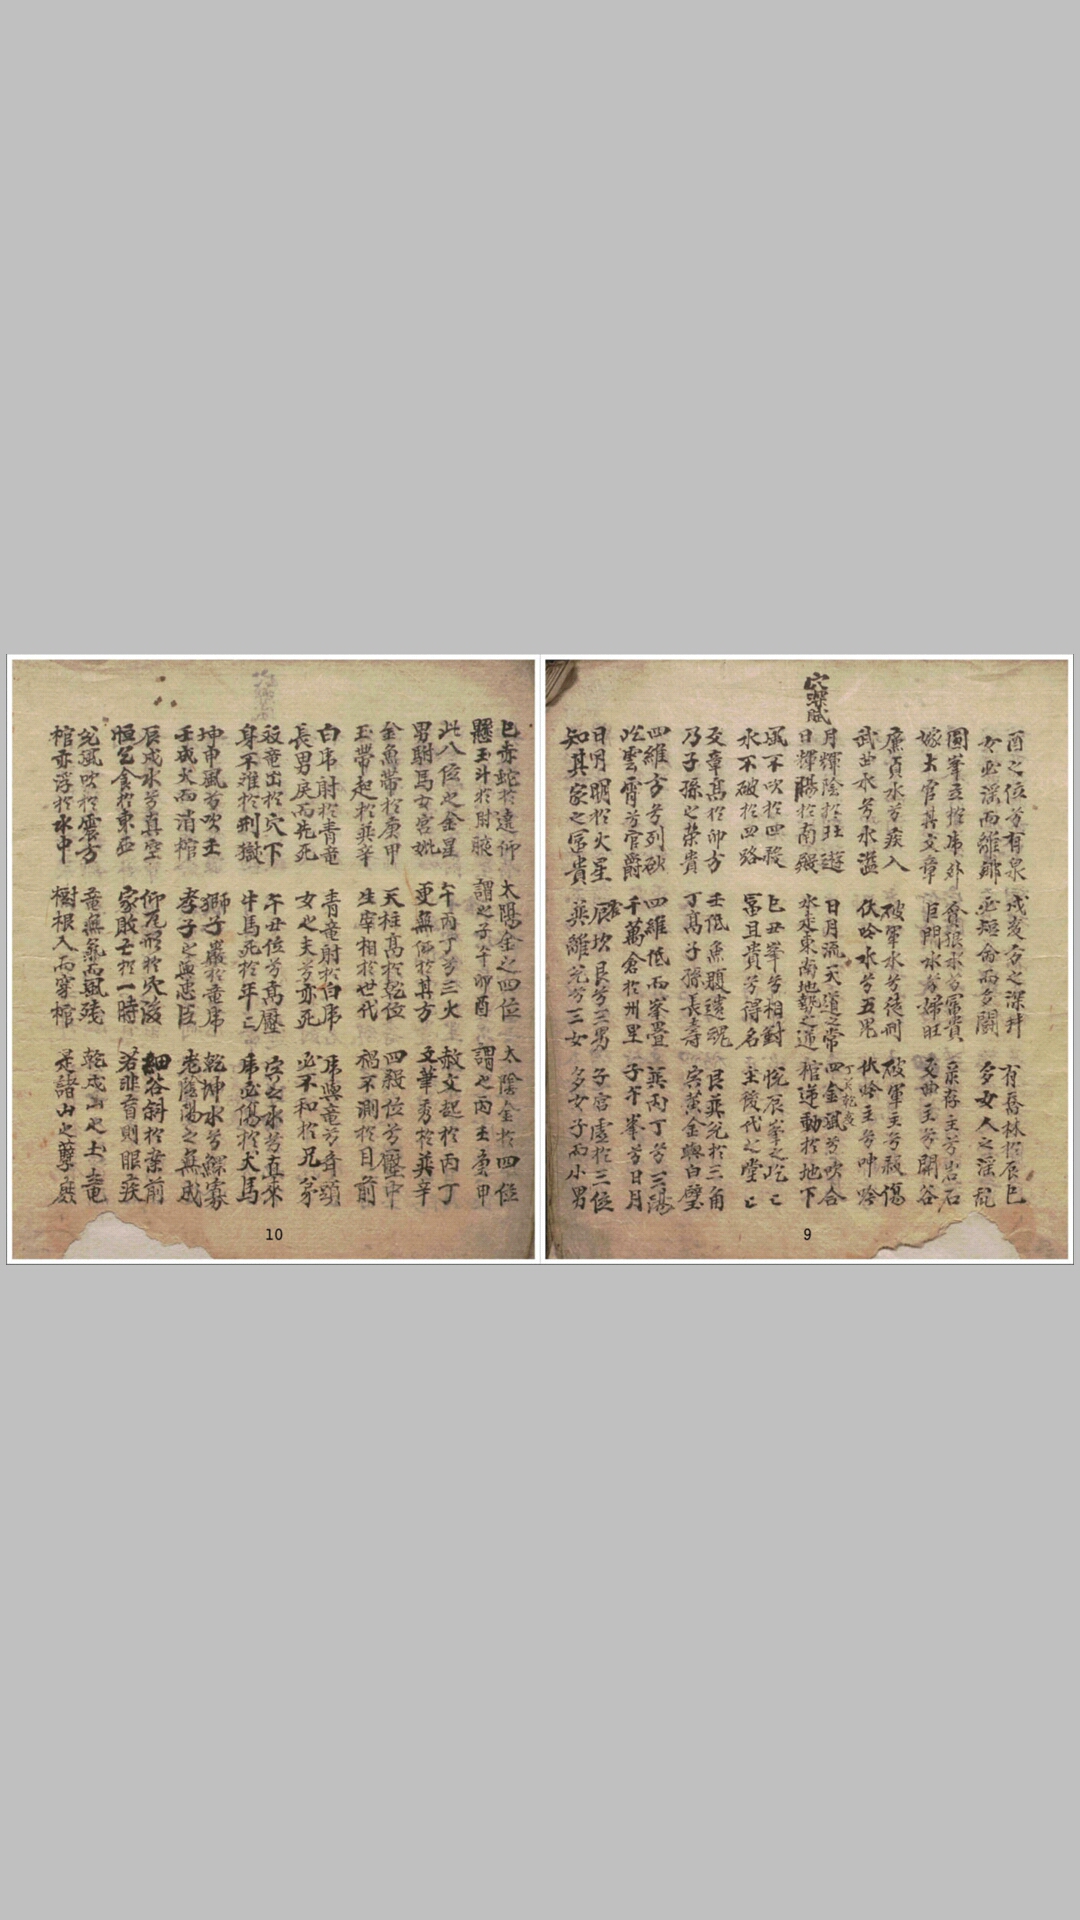 穴深賦
酉之位兮有泉
女必淫而離鄉
圓峯立於庫外
嫁大官其文章
廉貞水兮疾入
武曲水兮水溢
月輝陰於
日輝腸於南殿
風不吹於四殺
水不破於四路
文章高於卯方
乃子孫之榮貴
四維方兮列砂
屹雲霄兮官爵
日月明於火星
知其家之冨貴
之深井
必短命而多鬪
貪狼水兮冨貴
巨門水兮婦旺
破軍水兮徒刑
伏吟水兮五鬼
日月流天道之常
水走東南地勢之道
巳丑峯兮相對
冨且貴兮得名
壬低魚腹遺魂
丁高子孫長壽
四維低而峯疊
千萬倉於州里
艮坎艮兮三男
巽離兌兮三女
有喬林於辰巳
多女人之淫亂
祿存主兮岩石
文曲主兮開谷
破軍主兮殺傷
伏吟主兮呻吟
四金風兮吹合
棺逆動於地下
悅辰峯之屹屹
主後代之堂堂
艮巽兌於三角
穴黃金與白璧
巽丙丁兮三陽
子午峯兮日月
子宮虛於三位
多女子而小男
9
巳赤蛇於遠仰
懸玉斗於肘腋
此八位之金星
男駙馬女宮妣
金魚帶於庚甲
玉帶起於巽辛
白虎射於青竜
長男戾而先死
殺竜出於穴下
身不離於刑獄
坤申風兮吹主
壬戌火而消棺
辰戌水兮真空
恒乞食於東西
兌風吹於震方
棺亦浮於水中
太陽金之四位
謂之子午卯酉
午丙丁兮三火
更無何於其方
天柱高於乾位
生宰相於世代
青竜射於白虎
女之夫兮亦死
午丑位兮高壓
牛馬死於年亡
獅子巖於竜虎
孝子之與忠臣
仰瓦形於穴後
家敗亡於一時
竜無氣而風殘
樹根入而穿棺
太陰金於四位
謂之丙壬庚甲
赦文起於丙丁
文筆秀於巽辛
四殺位兮壓中
禍不測於目前
虎與竜兮爭頭
必不和於兄弟
穴之水兮直來
虎必傷於犬馬
乾坤水兮鰥寡
老陰陽之無成
細谷斜於葉前
若非盲則眼疾
乾戌山之土竜
是諸山之孽
10